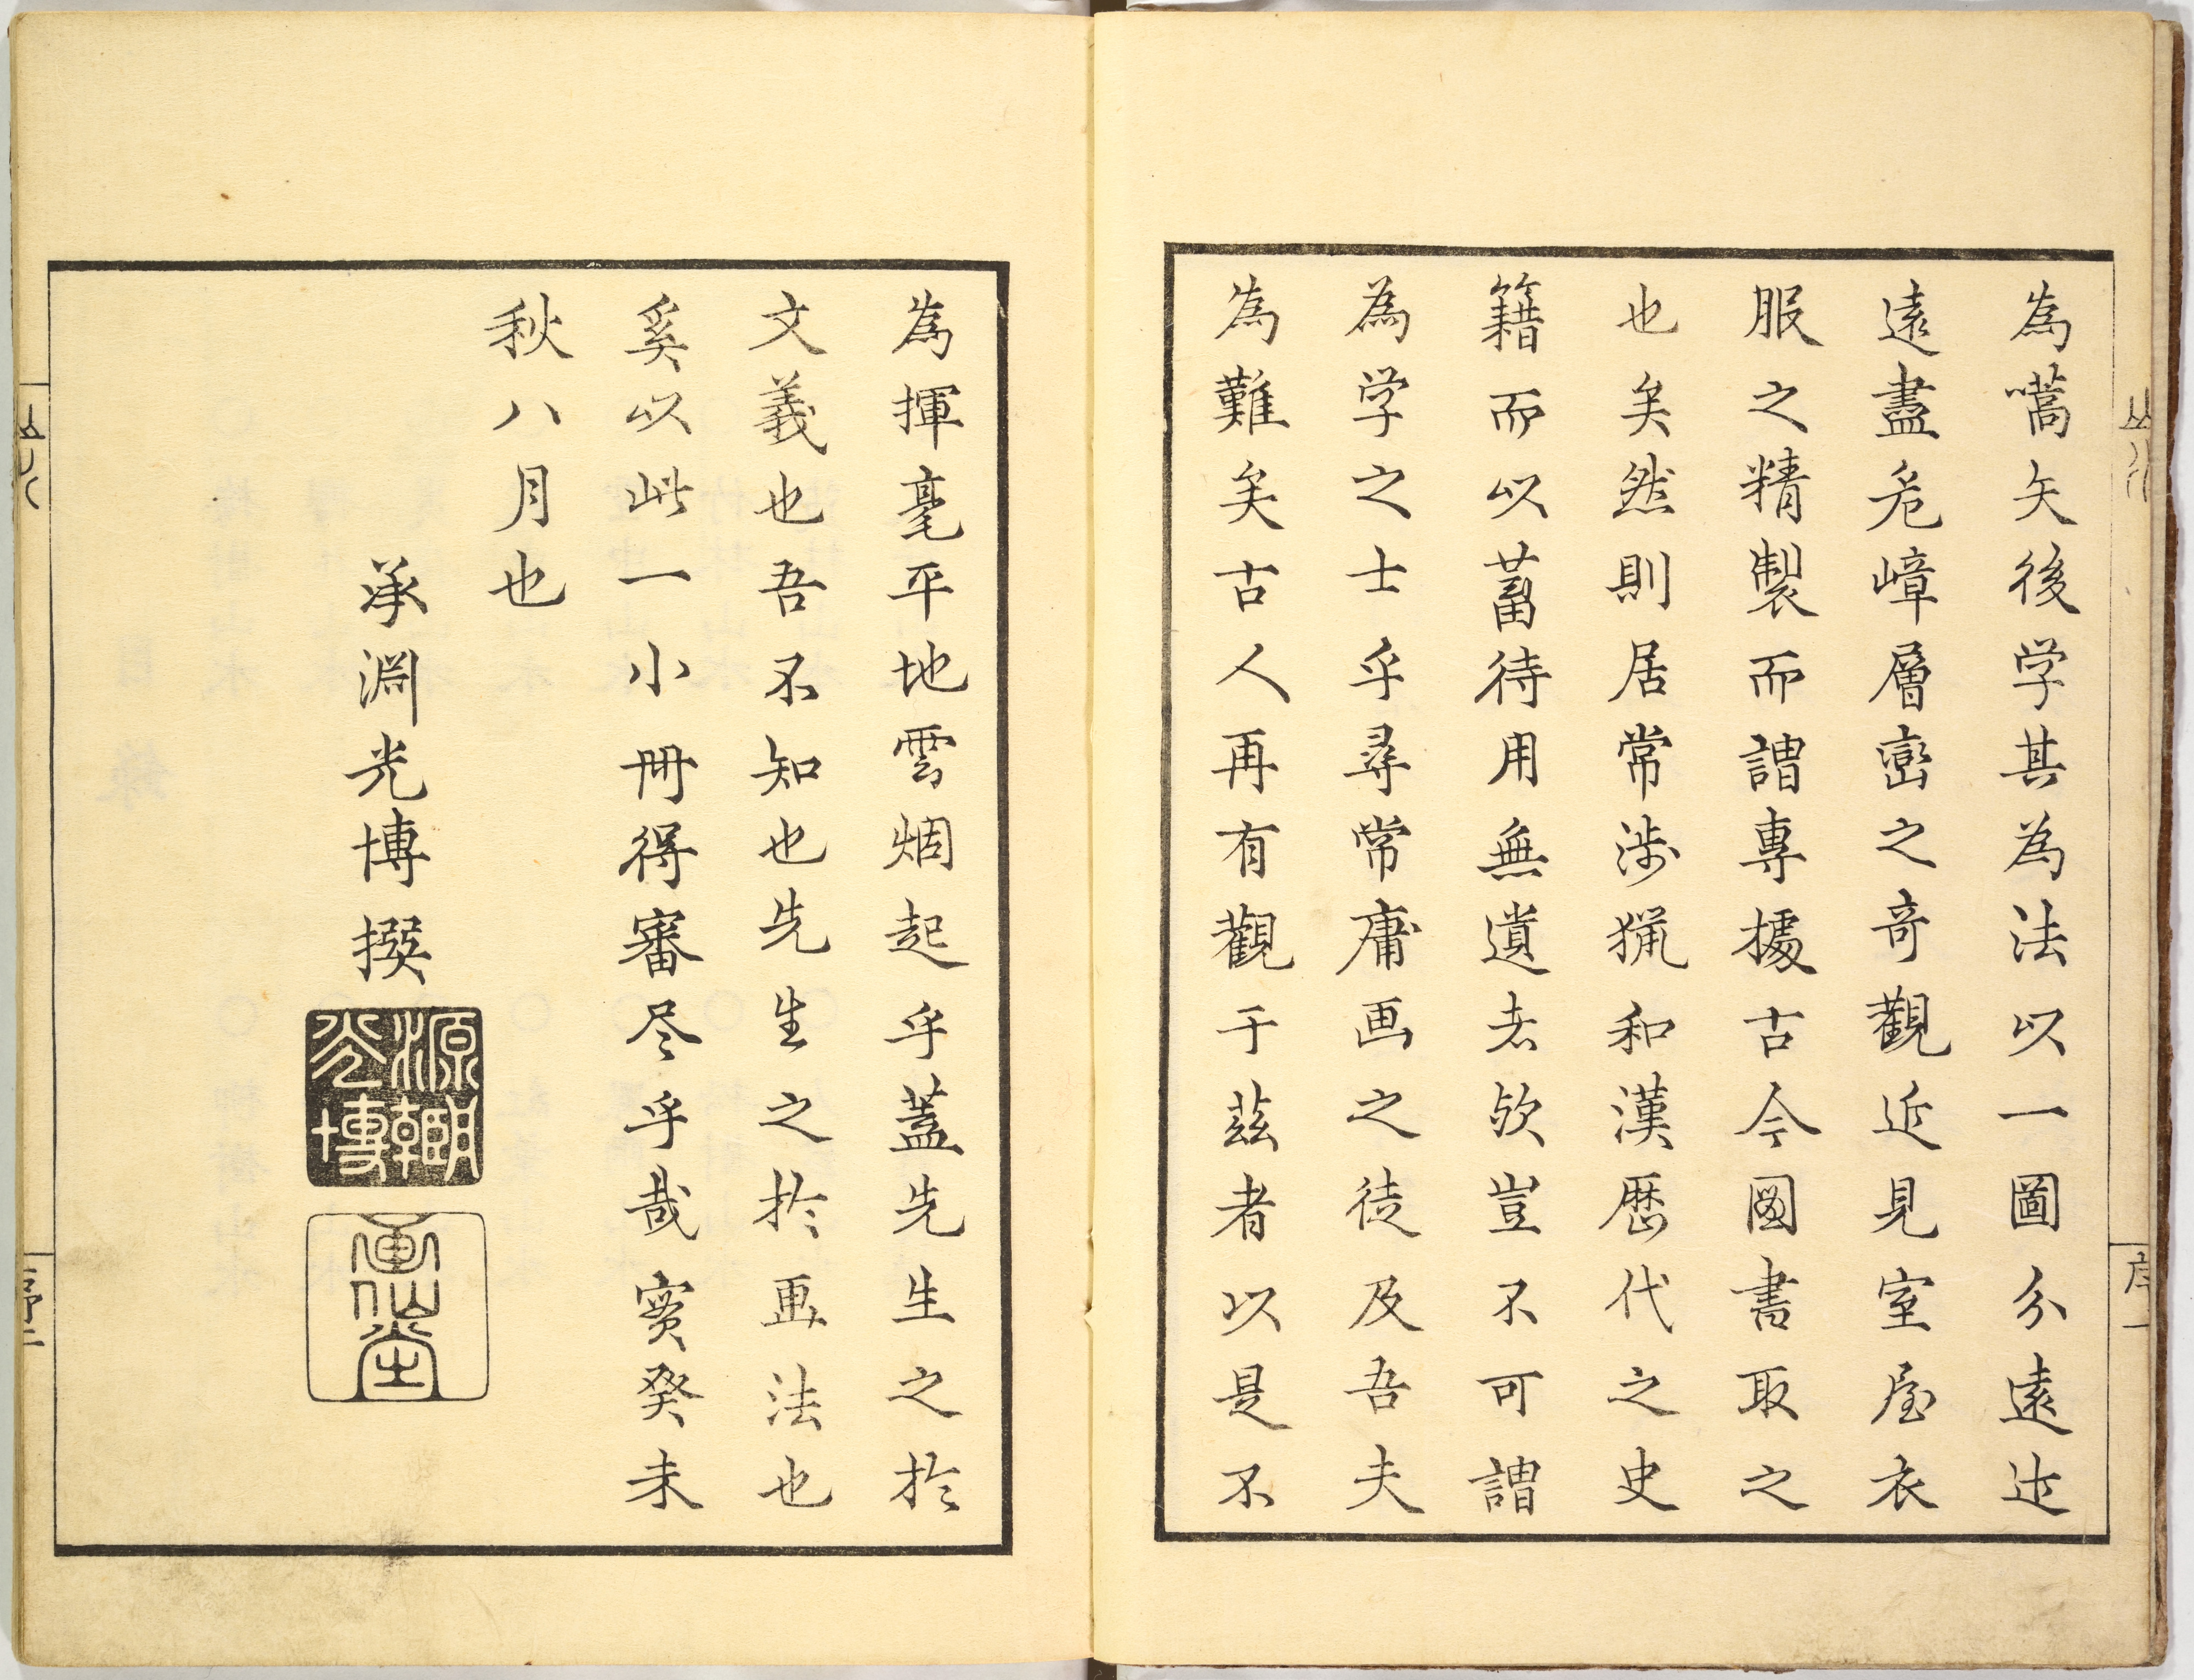 為嚆矢後学其為法以一圖分遠近
遠盡危嶂層巒之奇觀近見室屋衣
服之精製而謂專據古今圖書取之
也矣然則居常渉猟和漢歴代之史
籍而以蓄待用無遺者欤豈不可謂
為学之士乎尋常庸画之徒及吾夫
為難矣古人再有觀于茲者以是不
為揮毫平地雲烟起乎蓋先生之於
文義也吾不知也先生之於画法也
奚以此一小冊得審尽乎哉寔癸未
秋八月也
承淵光博撰
源朝光博
畫仙堂
序一
序二